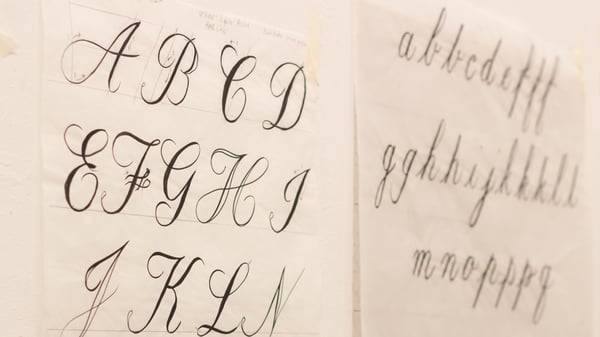 A B C D
E F G H I
J K L N
a b b c d e f f f
g g h h i j k k k l l
m n o p p p q